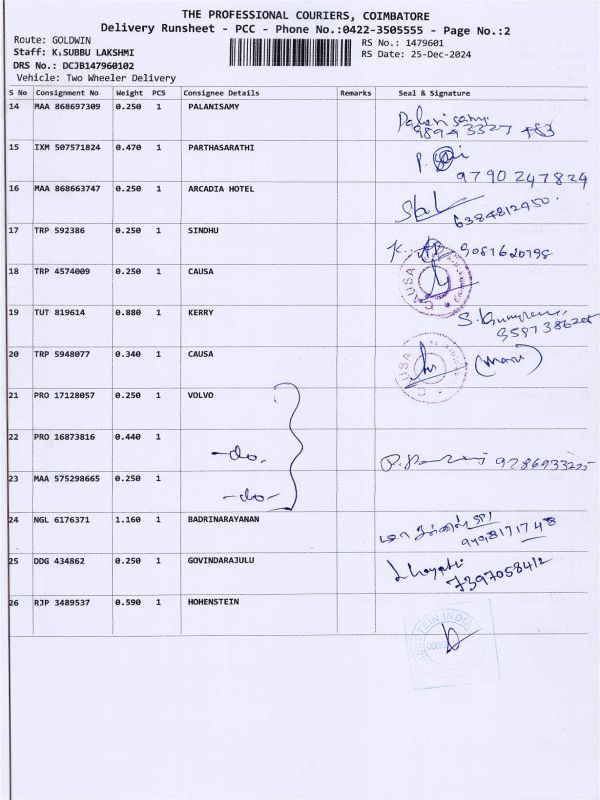 THE PROFESSIONAL COURIERS, COIMBATORE
Delivery Runsheet - PCC - Phone No.:0422-3505555 - Page No.:2
Route: GOLDWIN
RS No.: 1479601
Staff: K.SUBBU LAKSHMI
RS Date: 25-Dec-2024
DRS No.: DCJB147960102
Vehicle: Two Wheeler Delivery
S No Consignment No Weight PCS Consignee Details Remarks Seal & Signature
14 MAA 868697309 0.250 1 PALANISAMY Palanisamy
15 IXM 507571824 0.470 1 PARTHASARATHI P.
9790247824
16 MAA 868663747 0.250 1 ARCADIA HOTEL
6384812450.
17 TRP 592386 0.250 1 SINDHU K. 9081620798
18 TRP 4574009 0.250 1 CAUSA CAUSA
19 TUT 819614 0.880 1 KERRY S.
20 TRP 5948077 0.340 1 CAUSA CAUSA
21 PRO 17128057 0.250 1 VOLVO
22 PRO 16873816 0.440 1 -do. P. 9286933225
23 MAA 575298665 0.250 1 -do-
24 NGL 6176371 1.160 1 BADRINARAYANAN
25 DDG 434862 0.250 1 GOVINDARAJULU
7397058412
26 RJP 3489537 0.590 1 HOHENSTEIN